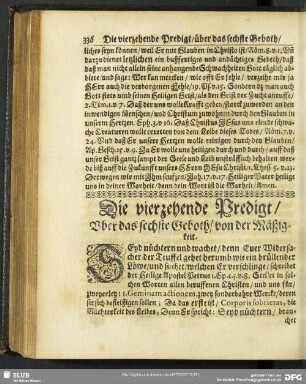 336 Die vierzehende Predigt/über das sechste Geboth/
liches seyn können/ weil Er mit Glauben in Christo ist/Röm.8.v.1. Vñ
darzu dienet letzlichen ein bußfertiges und andächtiges Geboth/ daß
daß man nicht allein seine anhangende Schwachheiten Gott täglich ab-
bitte/ und sage: Wer kan mercken/ wie offt Er fehle/ verzeihe mir ja
HErr auch die verborgenen Fehle/19.Ps.v.15. Sondern daß man auch
Gott stets umb seinen Heiligen Geist/ als den Geist der Zucht anruffe/
2.Tim.1.v.7. Daß der uns wolle Krafft geben/starck zu werden an den
inwendigen Menschen/ und Christum zu wohnen durch den Glauben in
unsern Hertzen. Eph.3.v.16. Daß Christus JESus uns elende schwa-
che Creaturen wolle erretten von dem Leibe dieses Todes/ Röm.7.v.
24. Und daß Er unsere Hertzen wolle reinigen durch den Glauben/
Ap. Gesch.15.v.9. Ja Er wolle uns heiligen durch und durch/ auff daß
unser Geist gantz sampt der Seele und Leib unsträfflich behalten wer-
de biß auff die Zukunfft unsers HErrn JEsu Christi/ 1.Thess. 5.v.23.
Derwegen wir mit Ihm seuffzen/Joh.17.v.17. Heiliger Vater heilige
uns in deiner Warheit/ denn dein Wort ist die Warheit/ Amen.
Die vierzehende Predigt/
Vber das sechste Geboth/ von der Mäßig-
keit.
SEyd nüchtern und wachet/ denn Euer Widersa-
cher der Teuffel gehet herumb wie ein brüllender
Löwe/und suchet/ welchen Er verschlinge/ schreibet
der Heilige Apostel Petrus 1.Ep.4.v.8. Stellet in sol-
chen Worten allen beruffenen Christen/ und uns für/
zweyerley: 1. Geminam actionem, zwey sonderbahre Wercke/ deren
sie sich befleißigen sollen; Da das erste ist/ Corporis sobrietas, die
Nüchterkeit des Leibes/ Denn Er spricht: Seyd nüchtern/ brau-
chet
SLUB